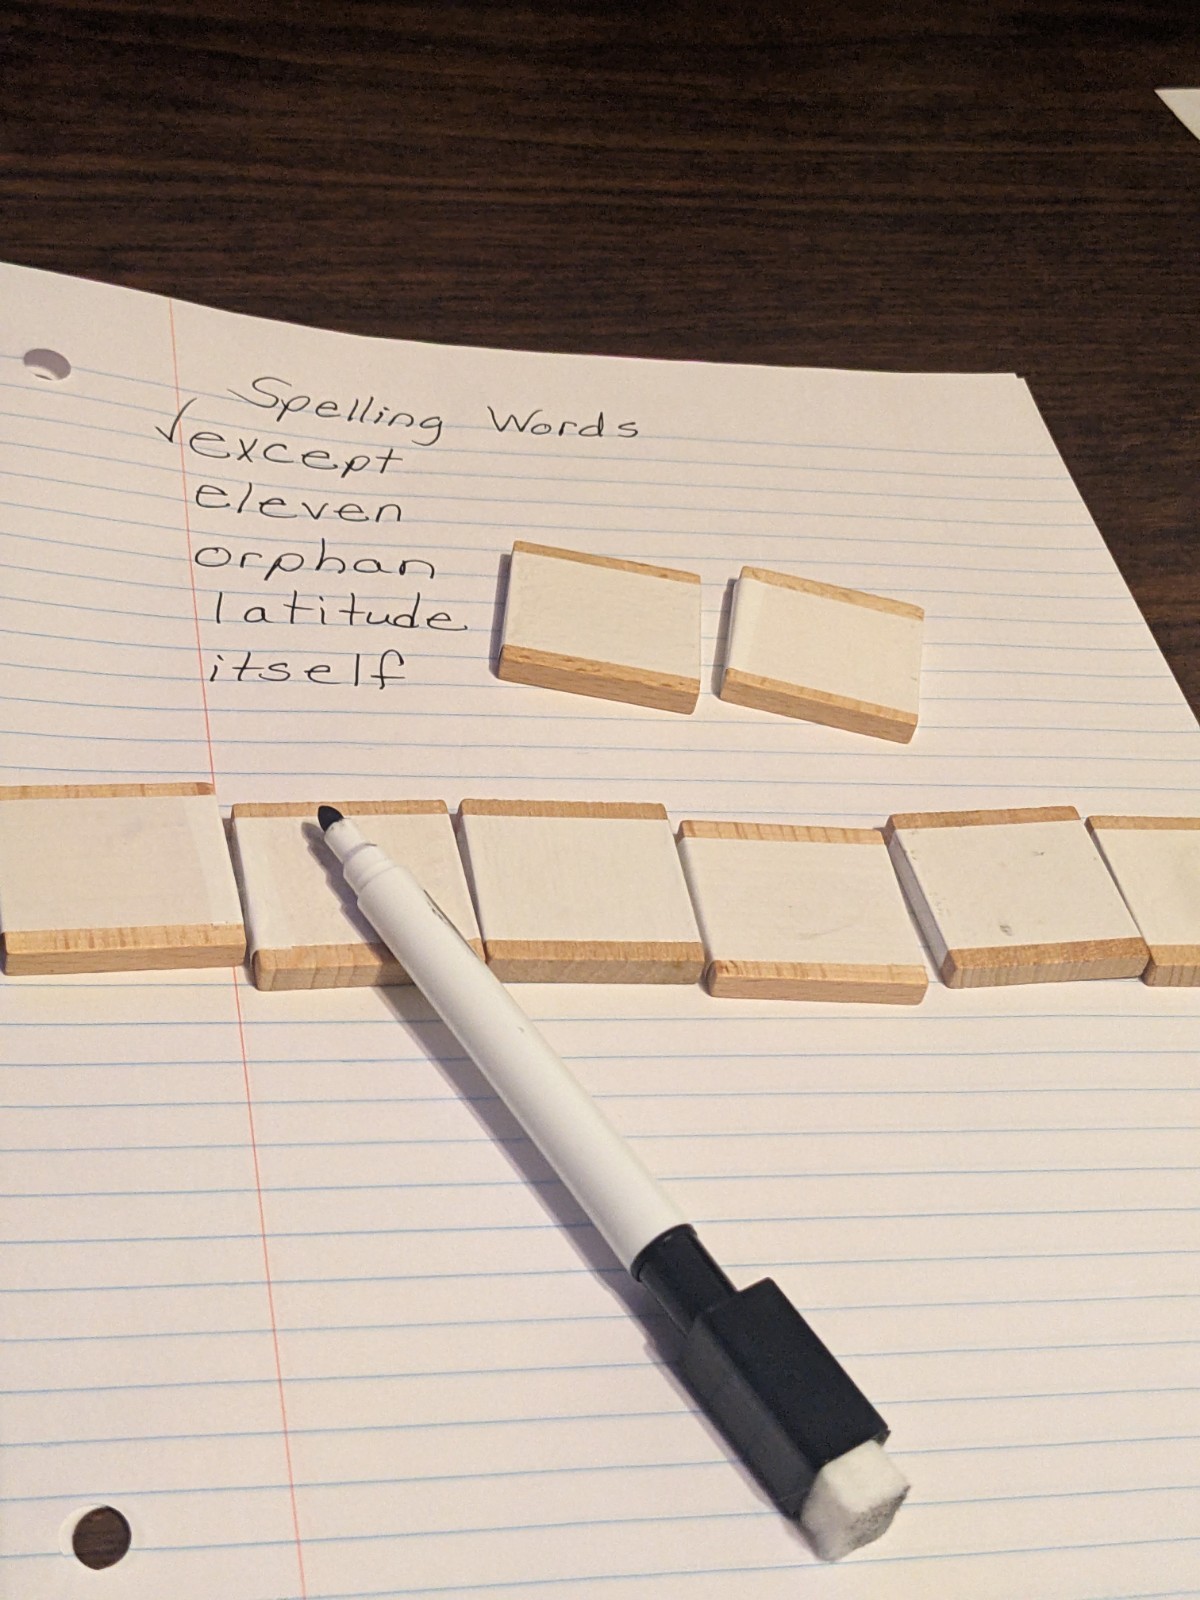 Spelling Words
✓except
eleven
orphan
latitude
itself